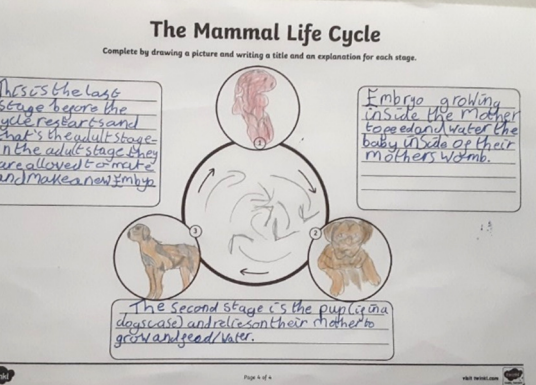 The Mammal Life Cycle
Complete by drawing a picture and writing a title and an explanation for each stage.
This is the last
stage before the
cycle restarts and
that's the adult stage-
in the adult stage they
are allowed to mate
and make a new Embyo
Embryo growing
inside the mother
to feed and water the
baby inside of their
mothers womb.
1
3
2
The second stage is the pup (ie in a
dogs case) and relies on their mother to
grow and feed/water.
twinkl
Page 4 of 4
visit twinkl.com